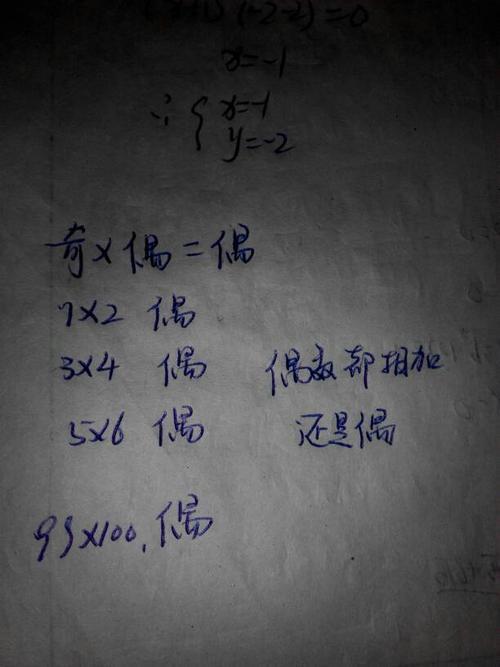 (-2-2)=0
x=-1
∴{x=-1
y=-2
奇×偶=偶
1×2 偶
3×4 偶 偶数都相加
5×6 偶 还是偶
99×100. 偶